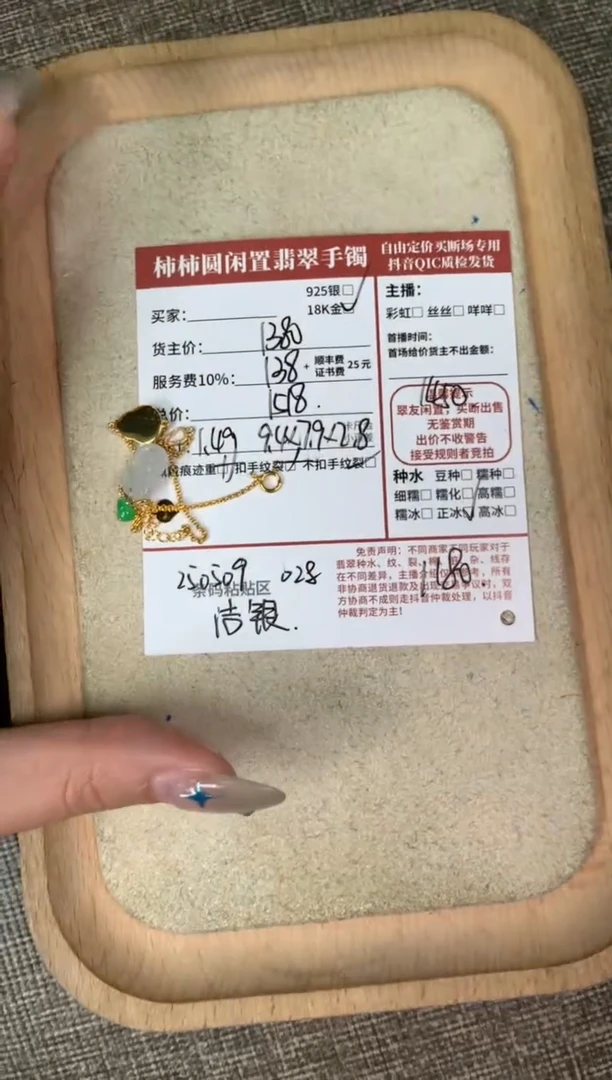 柿柿圆闲置翡翠手镯
自由定价买断场专用
抖音QIC质检发货
925银□
18K金☑
买家:
货主价: 1380
服务费10%: 138 + 顺丰费 证书费 25元
总价: 1518.
1.49 9.4×7.9×2.8
痕迹重□ 扣手纹裂□ 不扣手纹裂□
主播:
彩虹□ 丝丝□ 咩咩□
首播时间:
首场给价货主不出金额:
1450
翠友闲置,买断出售
无鉴赏期
出价不收警告
接受规则者竞拍
种水 豆种□ 糯种□
细糯□ 糯化□ 高糯□
糯冰□ 正冰☑ 高冰□
250509 028
条码粘贴区
洁银.
免责声明:不同商家不同玩家对于
翡翠种水、纹、裂、杂、线存
在不同差异,主播介绍
考,所有
非协商退货退款及出现
争议时,双
方协商不成则走抖音仲裁处理,以抖音
仲裁判定为主!